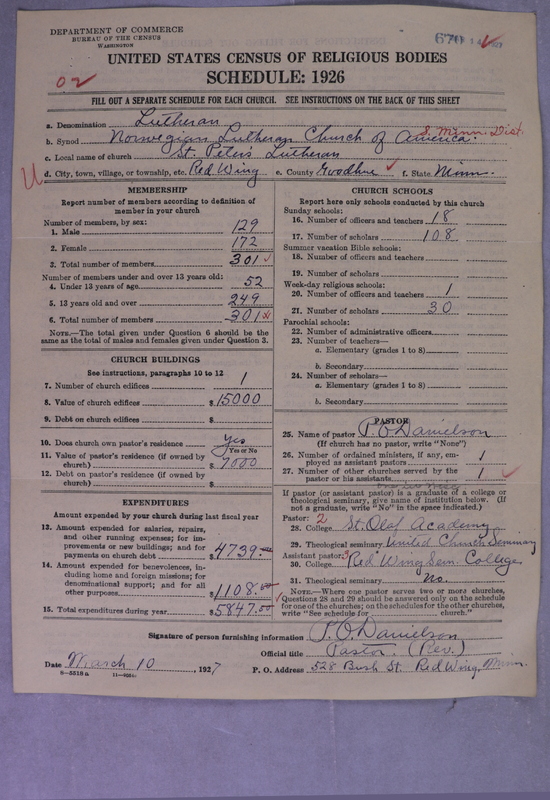 DEPARTMENT OF COMMERCE
BUREAU OF THE CENSUS
WASHINGTON
670
UNITED STATES CENSUS OF RELIGIOUS BODIES
SCHEDULE: 1926
02
FILL OUT A SEPARATE SCHEDULE FOR EACH CHURCH. SEE INSTRUCTIONS ON THE BACK OF THIS SHEET
a. Denomination Lutheran
b. Synod Norwegian Lutheran Church of America. S. Minn. Dist.
c. Local name of church St. Peters Lutheran
d. City, town, village, or township, etc. Red Wing e. County Goodhue f. State Minn.
MEMBERSHIP
Report number of members according to definition of
member in your church
Number of members, by sex:
1. Male 129
2. Female 172
3. Total number of members 301
Number of members under and over 13 years old:
4. Under 13 years of age 52
5. 13 years old and over 249
6. Total number of members 301
NOTE.—The total given under Question 6 should be
the same as the total of males and females given under Question 3.
CHURCH BUILDINGS
See instructions, paragraphs 10 to 12
7. Number of church edifices 1
8. Value of church edifices $ 15000
9. Debt on church edifices $
10. Does church own pastor's residence yes
Yes or No
11. Value of pastor's residence (if owned by
church) $ 7000
12. Debt on pastor's residence (if owned by
church) $
EXPENDITURES
Amount expended by your church during last fiscal year
13. Amount expended for salaries, repairs,
and other running expenses; for im-
provements or new buildings; and for
payments on church debt $ 4739.00
14. Amount expended for benevolences, in-
cluding home and foreign missions; for
denominational support; and for all
other purposes $ 1108.00
15. Total expenditures during year $ 5847.00
CHURCH SCHOOLS
Report here only schools conducted by this church
Sunday schools:
16. Number of officers and teachers 18
17. Number of scholars 108
Summer vacation Bible schools:
18. Number of officers and teachers
19. Number of scholars
Week-day religious schools:
20. Number of officers and teachers 1
21. Number of scholars 30
Parochial schools:
22. Number of administrative officers
23. Number of teachers—
a. Elementary (grades 1 to 8)
b. Secondary
24. Number of scholars—
a. Elementary (grades 1 to 8)
b. Secondary
PASTOR
25. Name of pastor P. O. Danielson
(If church has no pastor, write "None")
26. Number of ordained ministers, if any, em-
ployed as assistant pastors 1
27. Number of other churches served by the
pastor or his assistants 1
If pastor (or assistant pastor) is a graduate of a college or
theological seminary, give name of institution below. (If
not a graduate, write "No" in the space indicated.)
Pastor: 2
28. College St. Olaf Academy
29. Theological seminary United Church Seminary
Assistant pastor: 3
30. College Red Wing Sem. College
31. Theological seminary No.
NOTE.—Where one pastor serves two or more churches,
Questions 28 and 29 should be answered only on the schedule
for one of the churches; on the schedules for the other churches,
write "See schedule for church."
Signature of person furnishing information P. O. Danielson
Official title Pastor. (Rev.)
Date March 10, 1927
P. O. Address 528 Bush St. Red Wing, Minn.
8—5518a